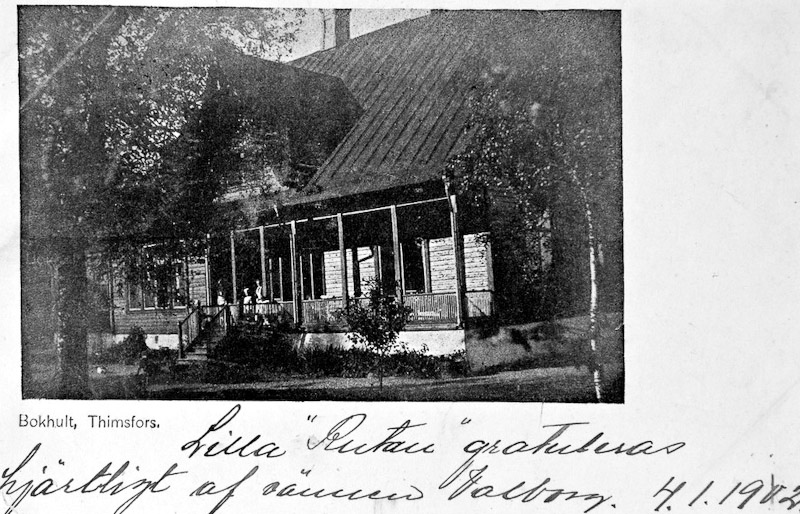 Bokhult, Thimsfors.
Lilla "Rutan" gratuleras
hjärtligt af vännen Valborg. 4.1.1902